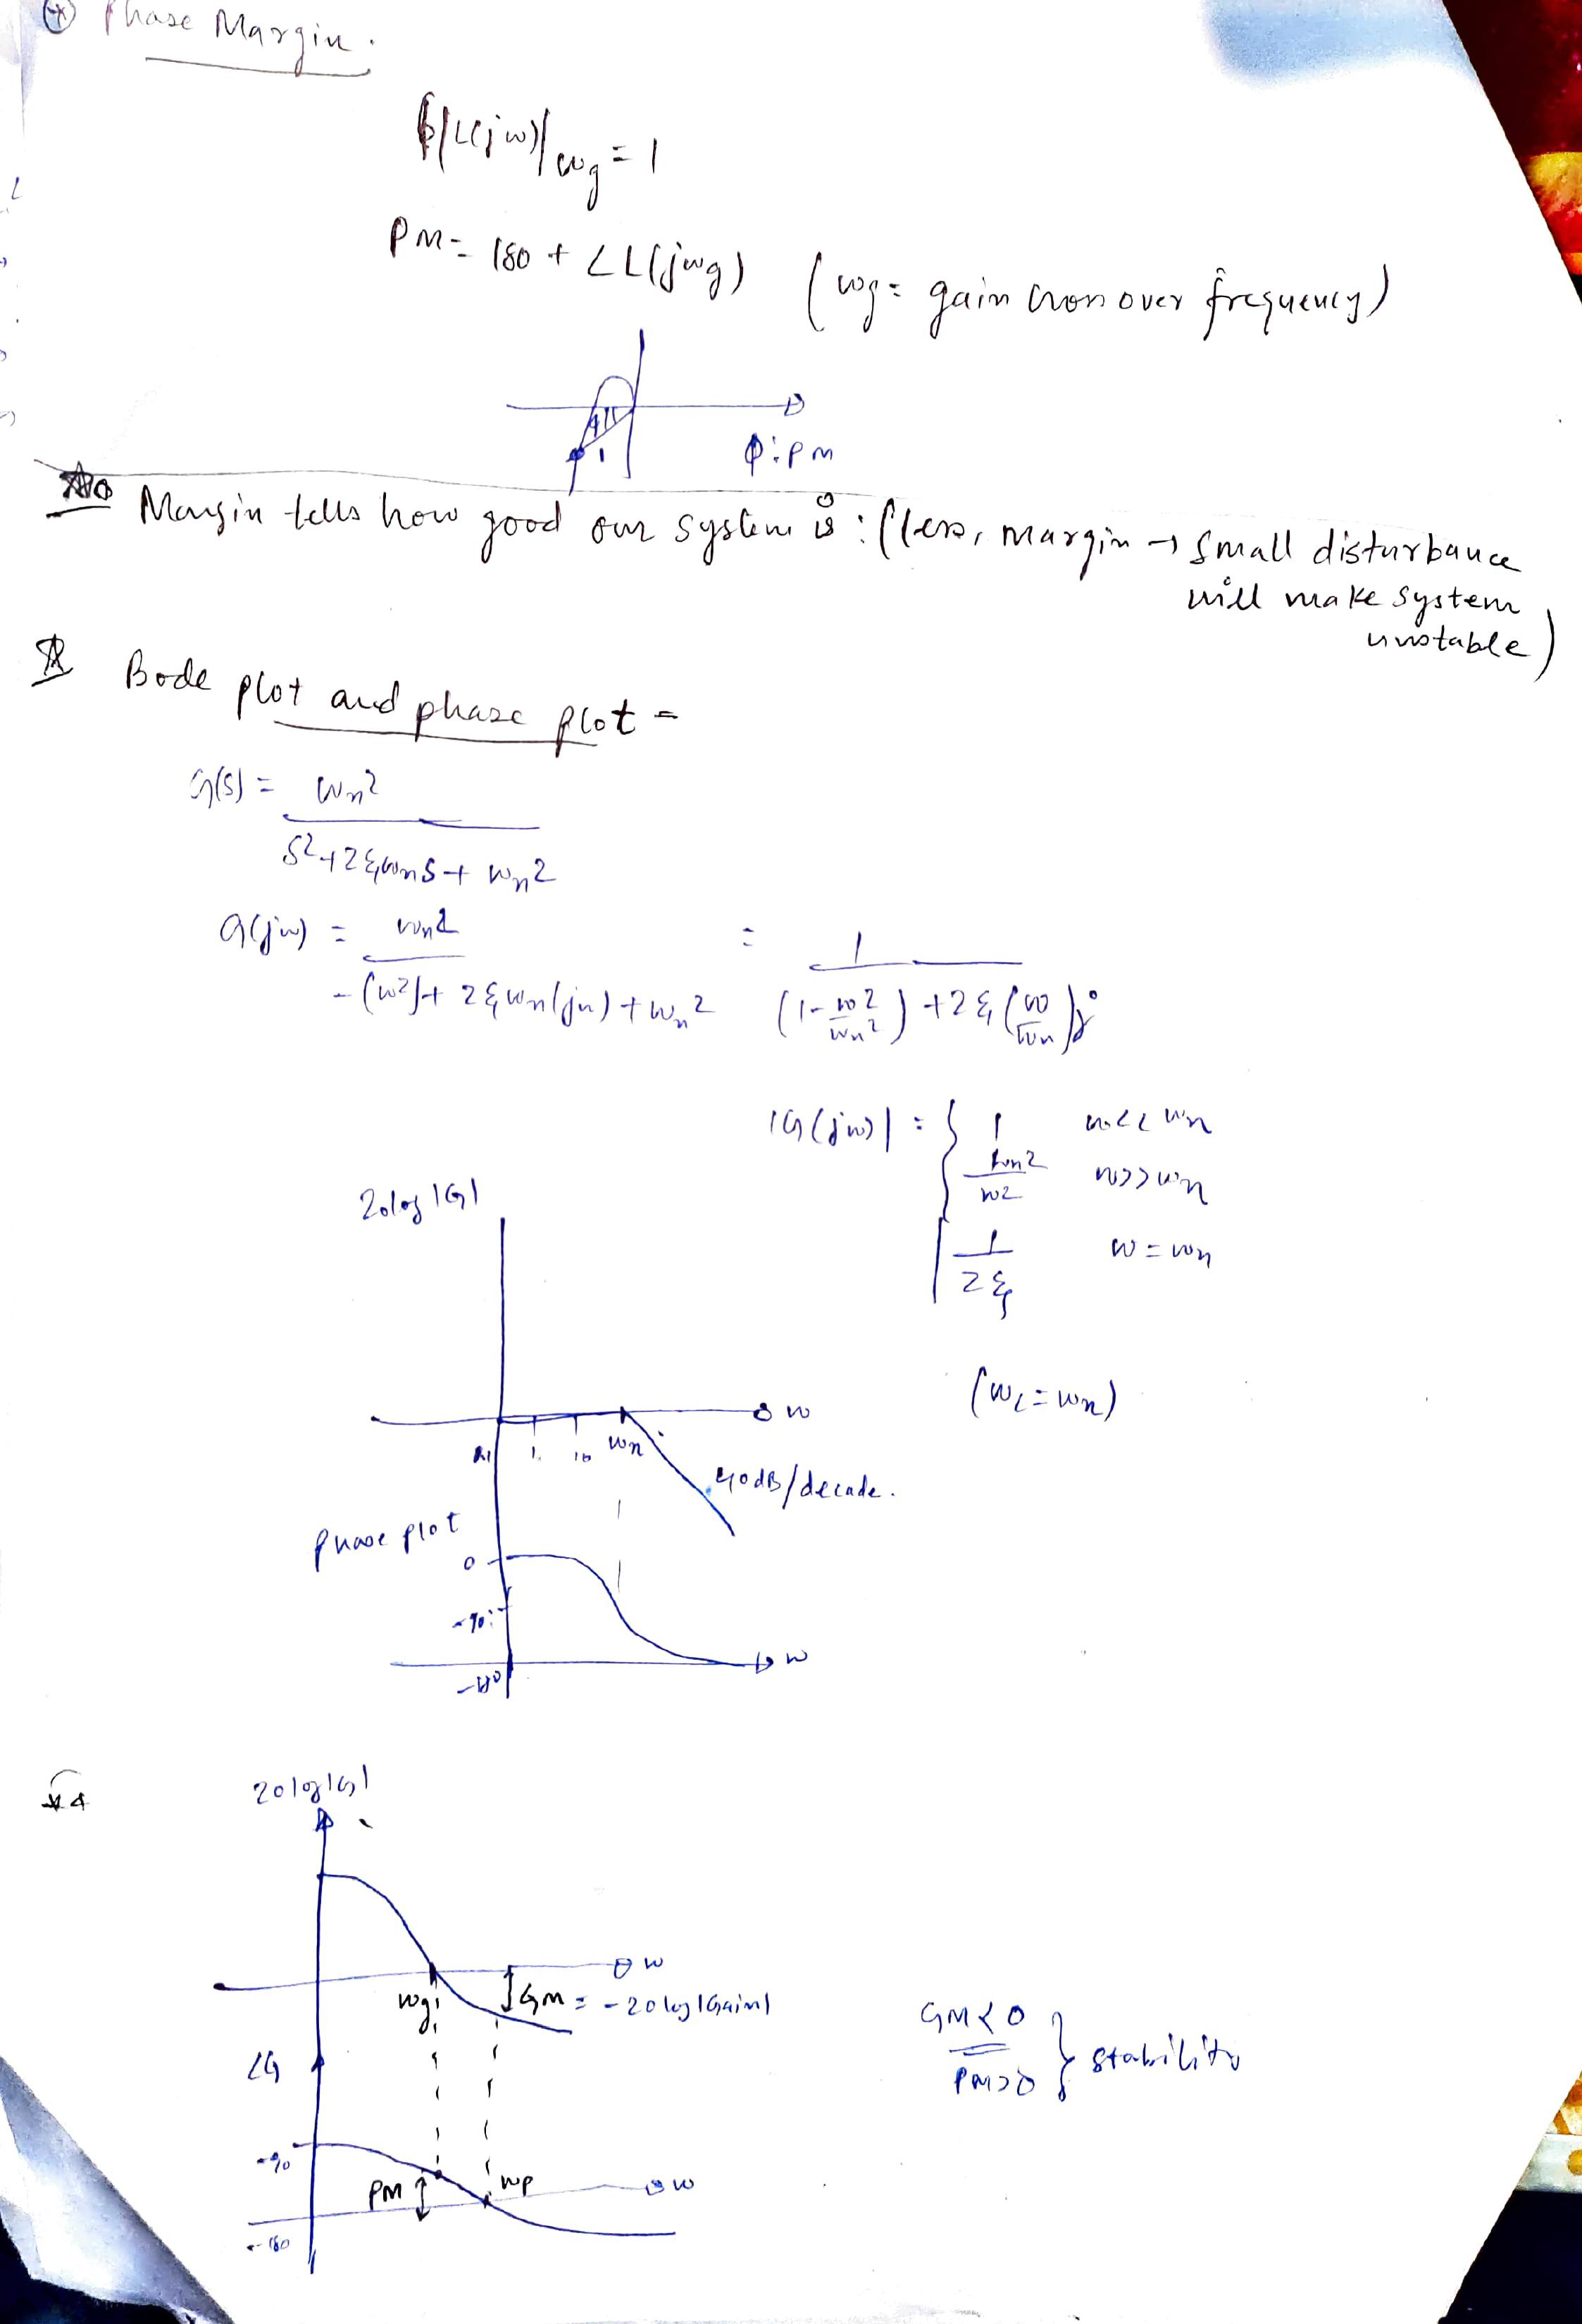 Phase Margin.
|L(jω)|ωg = 1
PM = 180 + ∠L(jωg) (ωg = gain cross over frequency)
φ: PM
Margin tells how good our system is : (less, margin → small disturbance
will make system
unstable)
Bode plot and phase plot =
G(s) = ωn²
s² + 2ξωns + ωn²
G(jω) = ωn² = 1
-(ω²) + 2ξωn(jω) + ωn² (1 - ω²/ωn²) + 2ξ(ω/ωn)j
|G(jω)| = { 1 ω << ωn
ωn²/ω² ω >> ωn
1/2ξ ω = ωn
20log|G|
(ωc = ωn)
ω
1 10 ωn
40dB/decade.
phase plot
0
-90
ω
-180
20log|G|
ω
ωg GM = -20log|Gain|
GM < 0
PM > 0 } stability
∠G
-90
PM ωp ω
-180